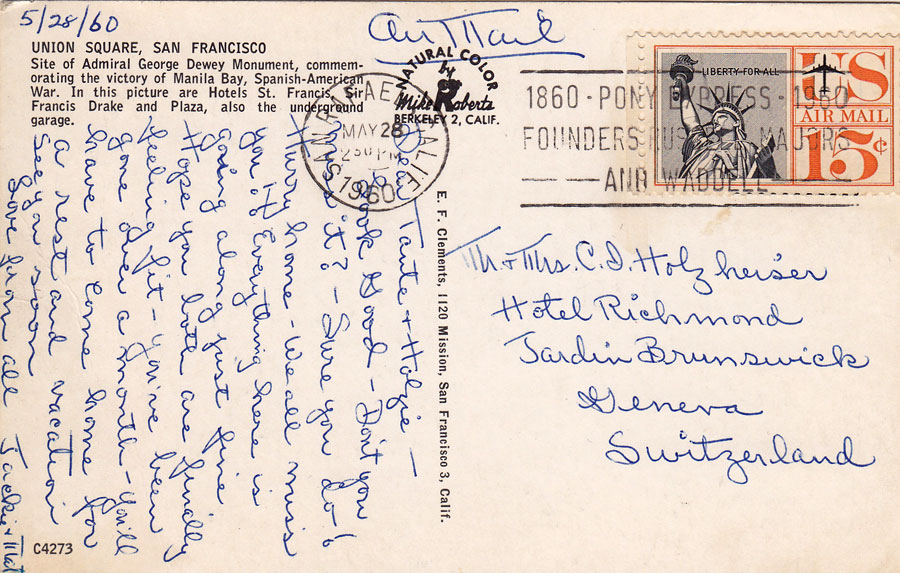 5/28/60
Air Mail
UNION SQUARE, SAN FRANCISCO
Site of Admiral George Dewey Monument, commem-
orating the victory of Manila Bay, Spanish-American
War. In this picture are Hotels St. Francis, Sir
Francis Drake and Plaza, also the underground
garage.
NATURAL COLOR
by
Mike Roberts
BERKELEY 2, CALIF.
SAN RAFAEL CALIF.
MAY 28
2 30 PM
1960
1860 - PONY EXPRESS - 1960
FOUNDERS RUSSELL MAJORS
AND WADDELL
LIBERTY FOR ALL
US
AIR MAIL
15¢
Dear Tante & Holzie —
Look Good - Don't you
miss it? - Sure you do!
Hurry home - We all miss
you. Everything here is
going along just fine
Hope you both are finally
feeling fit - you've been
gone over a month - you'll
have to come home for
a rest and vacation
See you soon
Love from all Jackie & Mat
E. F. Clements, 1120 Mission, San Francisco 3, Calif.
Mr. & Mrs. C. D. Holzheiser
Hotel Richmond
Jardin Brunswick
Geneva
Switzerland
C4273